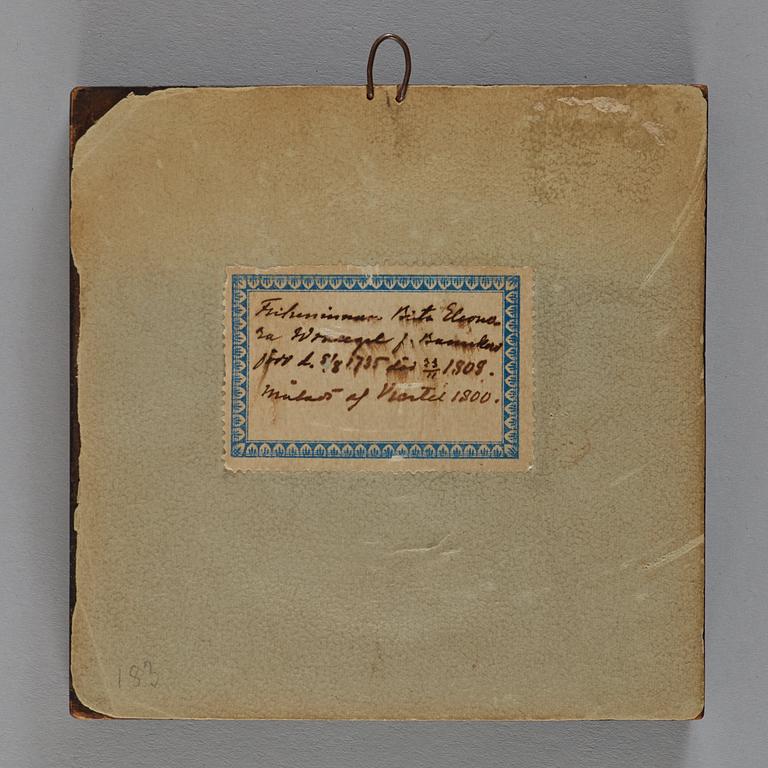 Friherrinnan Brita Eleono-
ra Wrangel f.
född d. 5/8 1735 död 23/11 1808.
Målad af Viertel 1800.
183